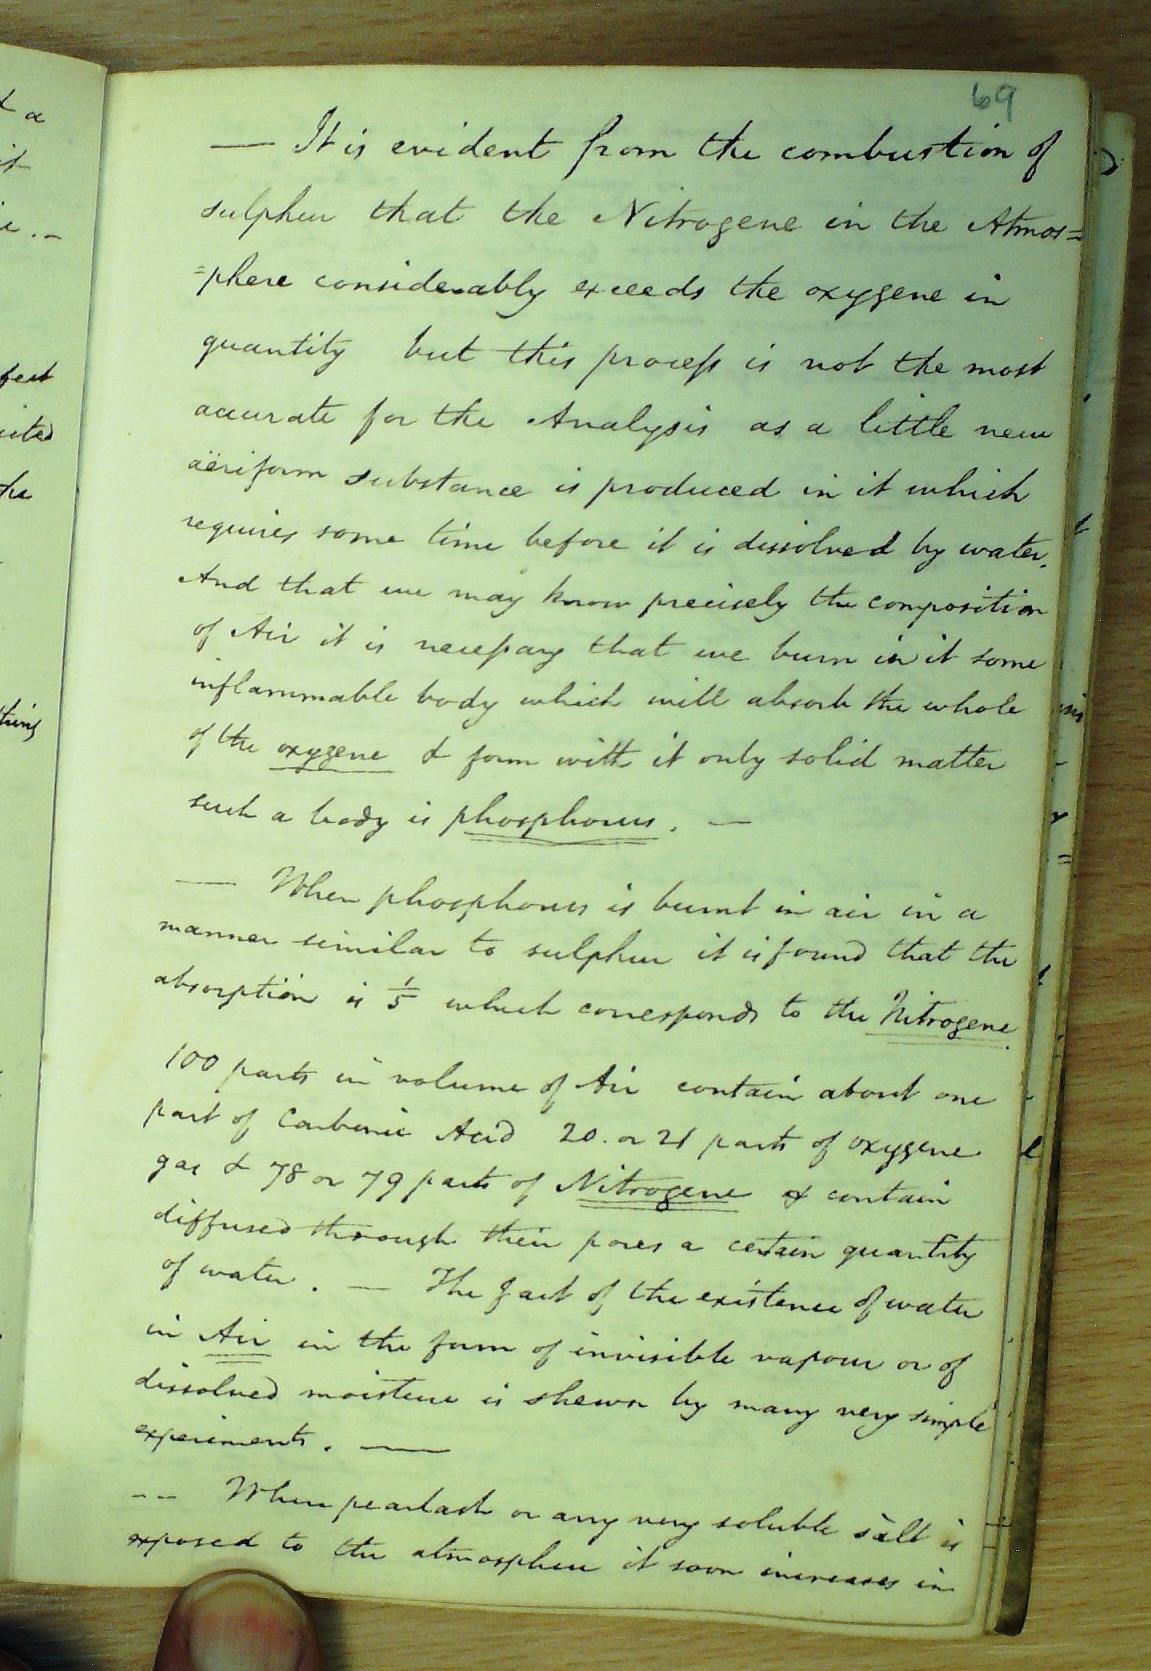 69
— It is evident from the combustion of
sulphur that the Nitrogene in the Atmos=
=phere considerably exceeds the oxygene in
quantity but this process is not the most
accurate for the Analysis as a little new
aëriform substance is produced in it which
requires some time before it is dissolved by water.
And that we may know precisely the composition
of Air it is necessary that we burn in it some
inflammable body which will absorb the whole
of the oxygene & form with it only solid matter
such a body is phosphorus. —
— When phosphorus is burnt in air in a
manner similar to sulphur it is found that the
absorption is 1/5 which corresponds to the Nitrogene.
100 parts in volume of Air contain about one
part of Carbonic Acid 20. or 21 parts of oxygene
gas & 78 or 79 parts of Nitrogene & contain
diffused through their pores a certain quantity
of water. — The fact of the existence of water
in Air in the form of invisible vapour or of
dissolved moisture is shewn by many very simple
experiments. —
-- When pearlash or any very soluble salt is
exposed to the atmosphere it soon increases in